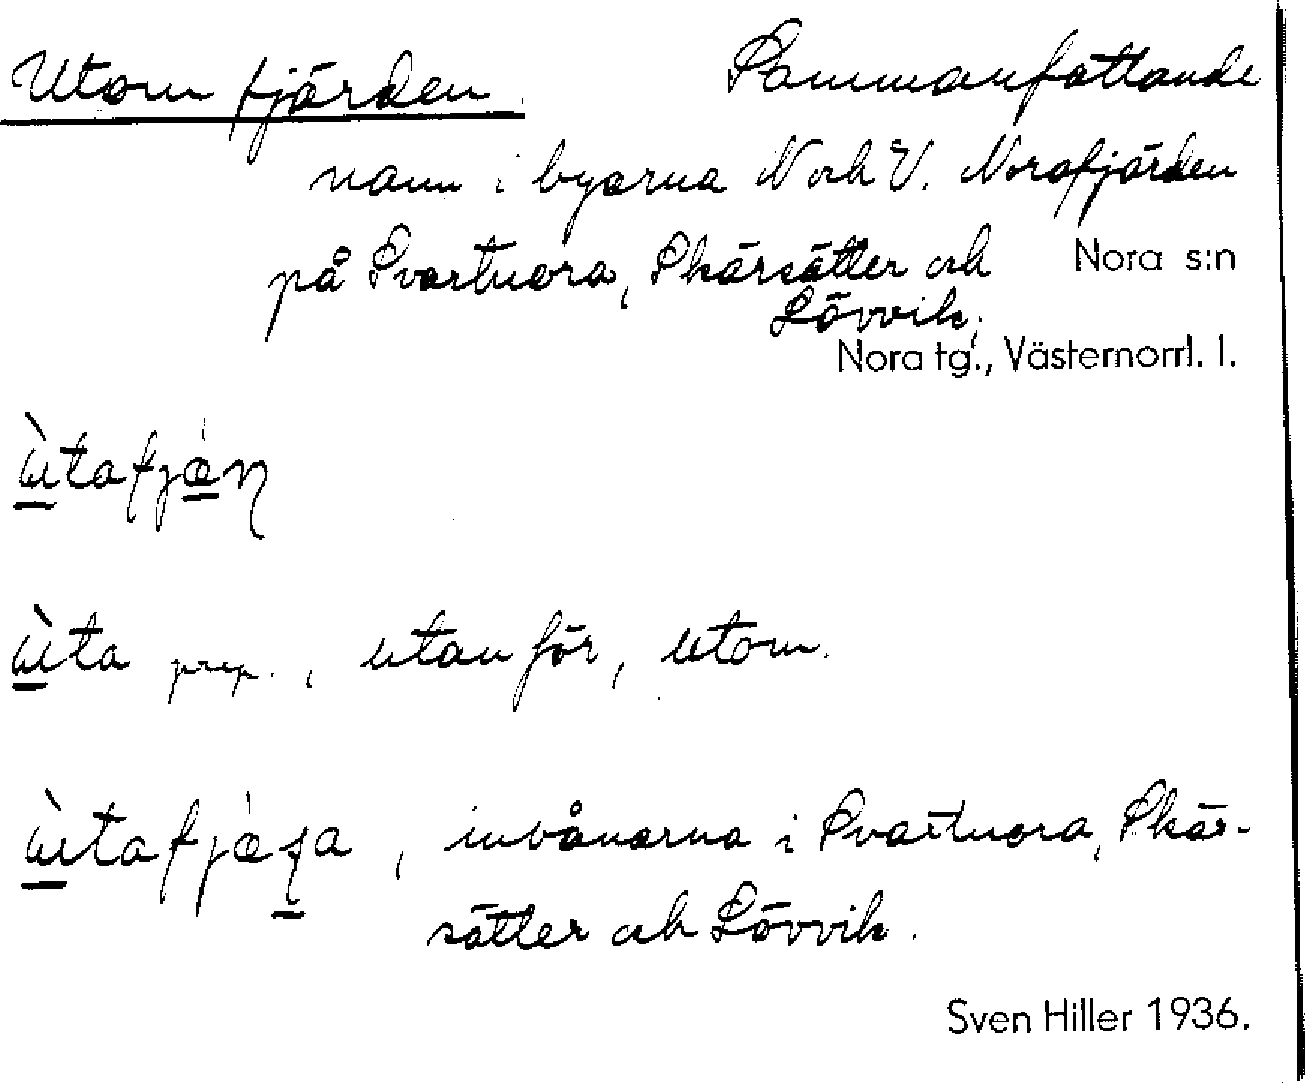 Utom fjärden. Sammanfattande
namn i byarna N och V. Norafjärden
på Svartnora, Skärsätter och
Nora s:n
Lövvik;
Nora tg., Västernorrl. l.
ùtafjæ̀ɳ
ùta prep., utanför, utom.
invånarna i Svartnora, Skär-
sätter och Lövvik.
Sven Hiller 1936.